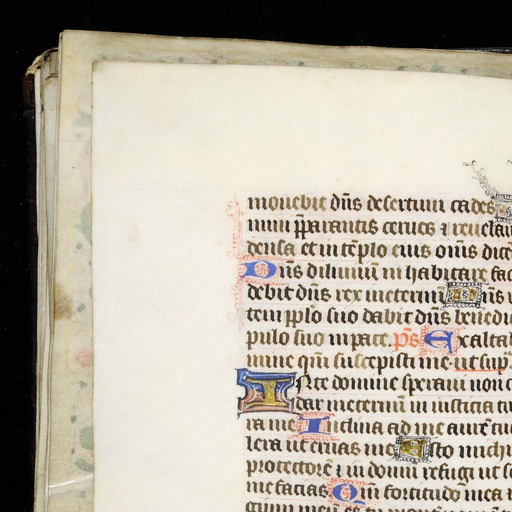 mouebit dñs desertum cades
uox dñi p̄parantis ceruos ⁊ reuelau
densa et in tēplo eius om̄s dicē
Dñs diluuiū in habitare fac
debit dñs rex ineternū Dñs u
tem pplo suo dabit dñs benedi
pplo suo in pace. p̄s Exaltab
mine qm̄ suscepisti me. ut sup
In te domine speraui non c
dar ineternū in iusticia tu
ra me Inclina ad me aurē tuā
lera ut eruas me Esto michi
protectorē ⁊ in domū refugii ut s
me facias Qm̄ fortitudo mea